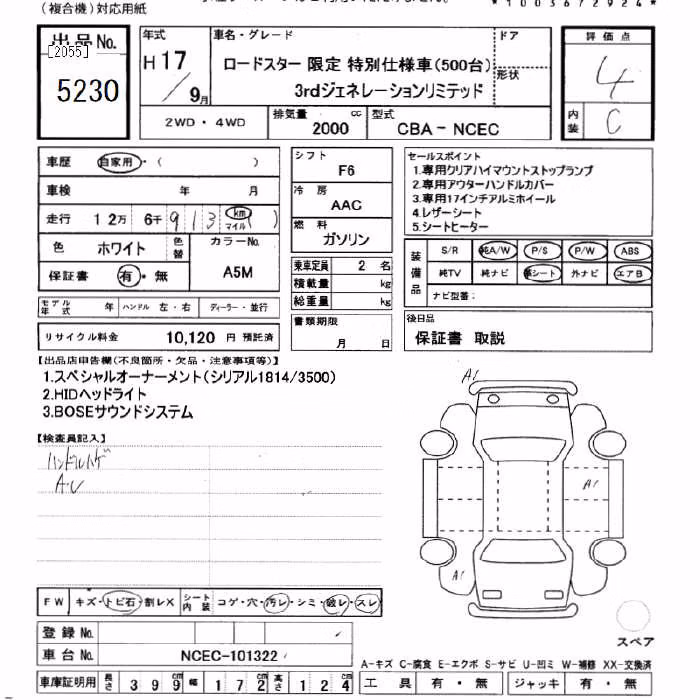 (複合機)対応用紙
*1003672924*
出品No.
[2055]
5230
年式
H17/9月
車名・グレード
ロードスター 限定 特別仕様車(500台)
3rdジェネレーションリミテッド
ドア
形状
2WD・4WD
排気量 2000 cc
型式 CBA-NCEC
評価点
4
内装
C
車歴 自家用・( )
車検 年 月
走行 12万 6千 913 km マイル )
色 ホワイト 色替 カラーNo. A5M
保証書 有・無
モデル年式 年 ハンドル 左・右 ディーラー・並行
リサイクル料金 10,120 円 預託済
シフト F6
冷房 AAC
燃料 ガソリン
乗車定員 2 名
積載量 kg
総重量 kg
書類期限 月 日
セールスポイント
1.専用クリアハイマウントストップランプ
2.専用アウターハンドルカバー
3.専用17インチアルミホイール
4.レザーシート
5.シートヒーター
装備品
S/R 純A/W P/S P/W ABS
純TV 純ナビ 革シート 外ナビ エアB
ナビ型番:
後日品
保証書 取説
【出品店申告欄(不良箇所・欠品・注意事項等)】
1.スペシャルオーナーメント(シリアル1814/3500)
2.HIDヘッドライト
3.BOSEサウンドシステム
【検査員記入】
ハンドルハゲ
A・U
A1
A1
A1
スペア
FW キズ・トビ石・割レX シート内装 コゲ・穴・汚レ・シミ・破レ・スレ
登録No.
車台No. NCEC-101322
車庫証明用 長さ 399cm 幅 172cm 高さ 124cm
A-キズ C-腐食 E-エクボ S-サビ U-凹ミ W-補修 XX-交換済
工具 有・無 ジャッキ 有・無